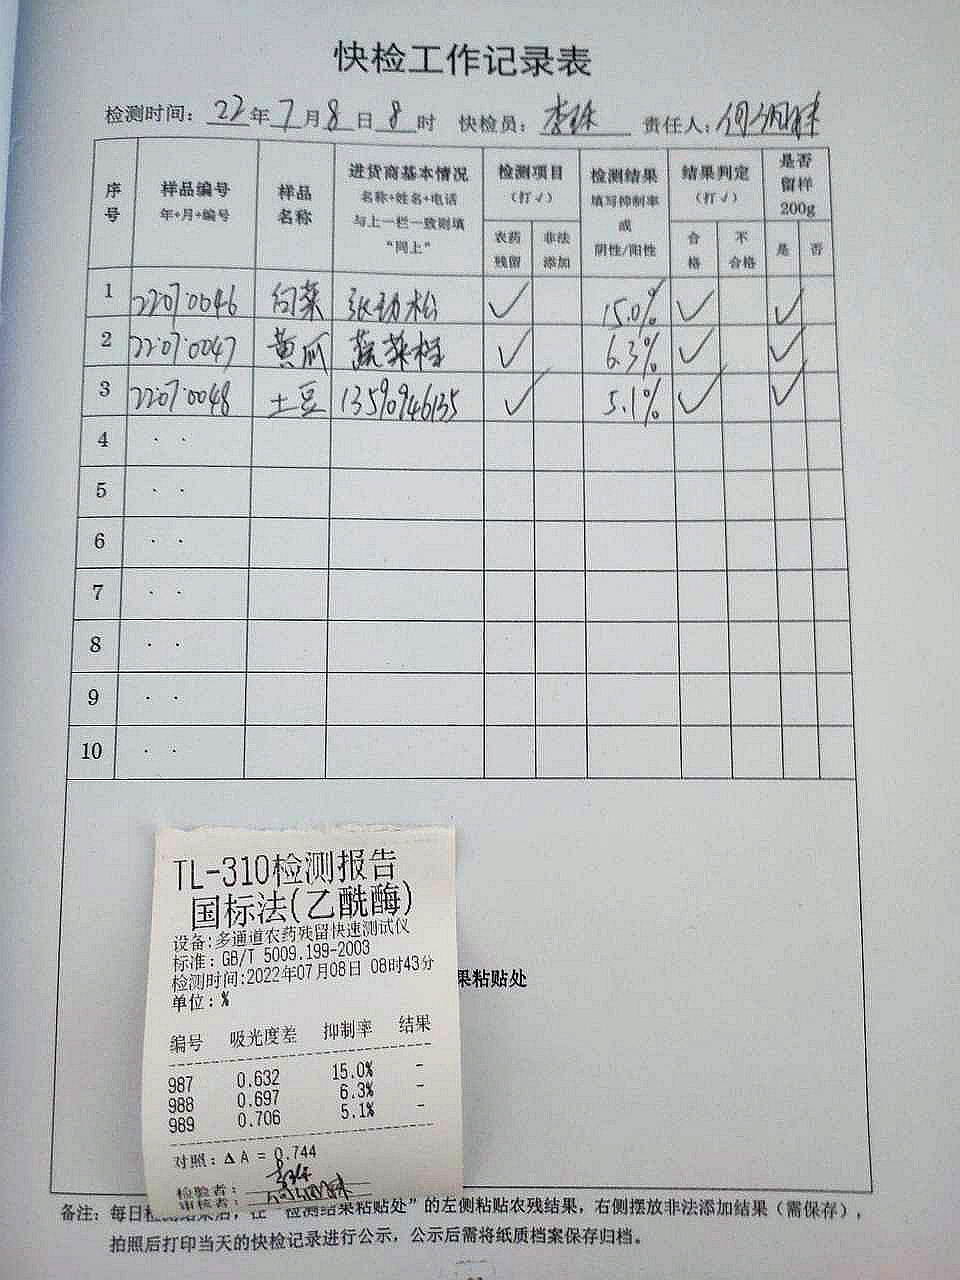 快检工作记录表
检测时间: 22年7月8日8时 快检员: 责任人:
序号 样品编号 年+月+编号 样品名称 进货商基本情况 名称+姓名+电话 与上一栏一致则填 “同上” 检测项目 (打√) 农药残留 非法添加 检测结果 填写抑制率 或 阴性/阳性 结果判定 (打√) 合格 不合格 是否留样200g 是 否
1 22·07·0046 白菜 张劲松 ✓ 15.0% ✓ ✓
2 22·07·0047 黄瓜 蔬菜档 ✓ 6.3% ✓ ✓
3 22·07·0048 土豆 13590946135 ✓ 5.1% ✓ ✓
4 · ·
5 · ·
6 · ·
7 · ·
8 · ·
9 · ·
10 · ·
果粘贴处
TL-310检测报告
国标法(乙酰酶)
设备:多通道农药残留快速测试仪
标准: GB/T 5009.199-2003
检测时间:2022年07月08日 08时43分
单位: %
编号 吸光度差 抑制率 结果
987 0.632 15.0% -
988 0.697 6.3% -
989 0.706 5.1% -
对照: ΔA = 0.744
检验者:
审核者:
备注: 每日检测结束后, 在“检测结果粘贴处”的左侧粘贴农残结果, 右侧摆放非法添加结果 (需保存),
拍照后打印当天的快检记录进行公示, 公示后需将纸质档案保存归档。